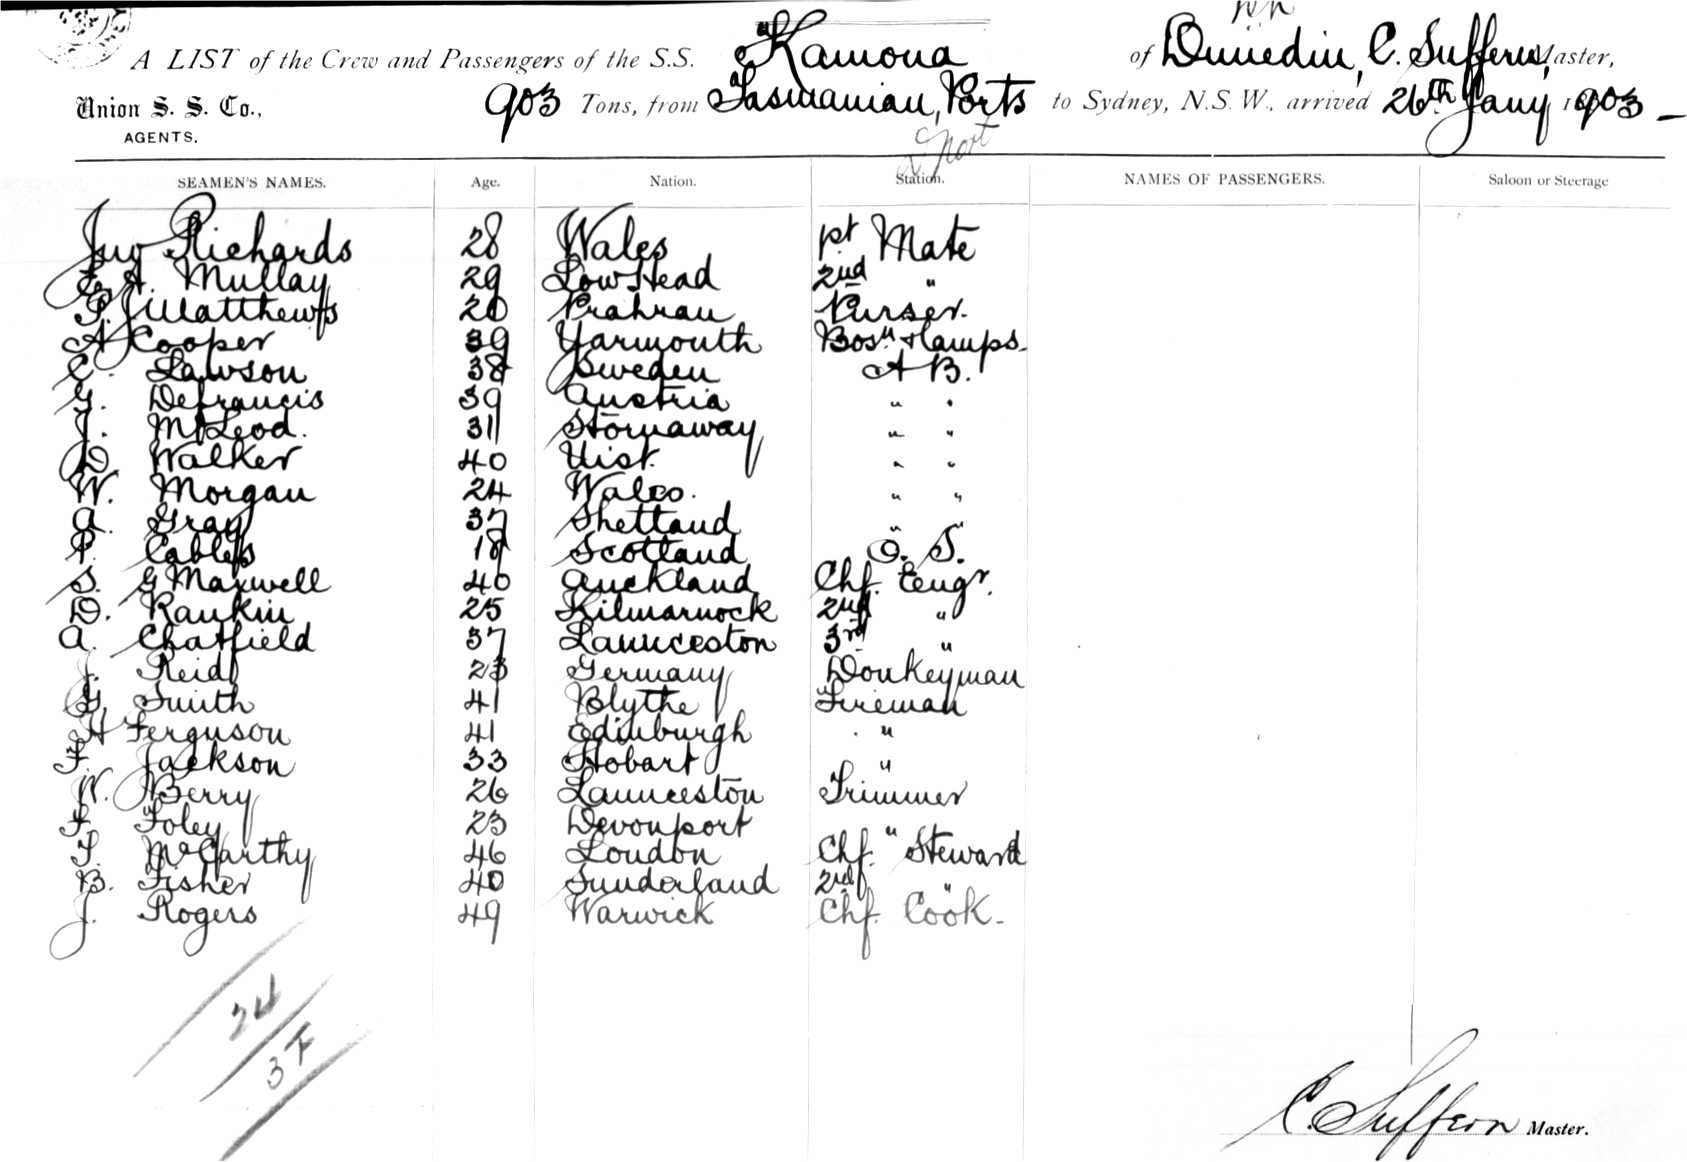 A LIST of the Crew and Passengers of the S.S. Kamona of Dunedin, C. Suffern, Master,
Union S. S. Co., 903 Tons, from Tasmanian Ports to Sydney, N.S.W., arrived 26th Jany 1903 -
AGENTS.
SEAMEN'S NAMES. Age. Nation. Station. NAMES OF PASSENGERS. Saloon or Steerage
Jno Richards 28 Wales 1st Mate
E. A. Mullay 29 Low Head 2nd "
P. J Matthews 20 Prahran Purser.
A Cooper 39 Yarmouth Bosn & Lamps
C. Lawson 38 Sweden A B.
G. Defrancis 39 Austria " "
J. McLeod. 31 Stornaway " "
D Walker 40 Uist. " "
W. Morgan 24 Wales. " "
A. Gray 37 Shetland " "
P. Cables 18 Scotland O. S.
S. G Maxwell 40 Auckland Chf. Engr.
D. Rankin 25 Kilmarnock 2nd "
A. Chatfield 37 Launceston 3rd "
J. Reid 23 Germany Donkeyman
G. Smith 41 Blythe Fireman
H Ferguson 41 Edinburgh "
F. Jackson 33 Hobart "
W. Berry 26 Launceston Trimmer
F. Foley 23 Devonport "
T. McCarthy 46 London Chf. Steward
B. Fisher 40 Sunderland 2nd "
J. Rogers 49 Warwick Chf. Cook -
24
3 F
C. Suffern Master.